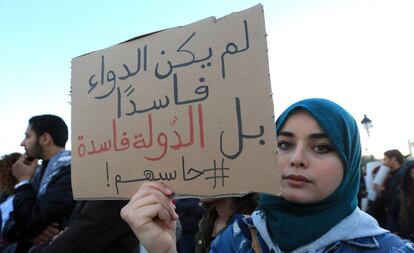 لم يكن الدواء
فاسدًا
بل الدّولة فاسدة
#حاسبهم!